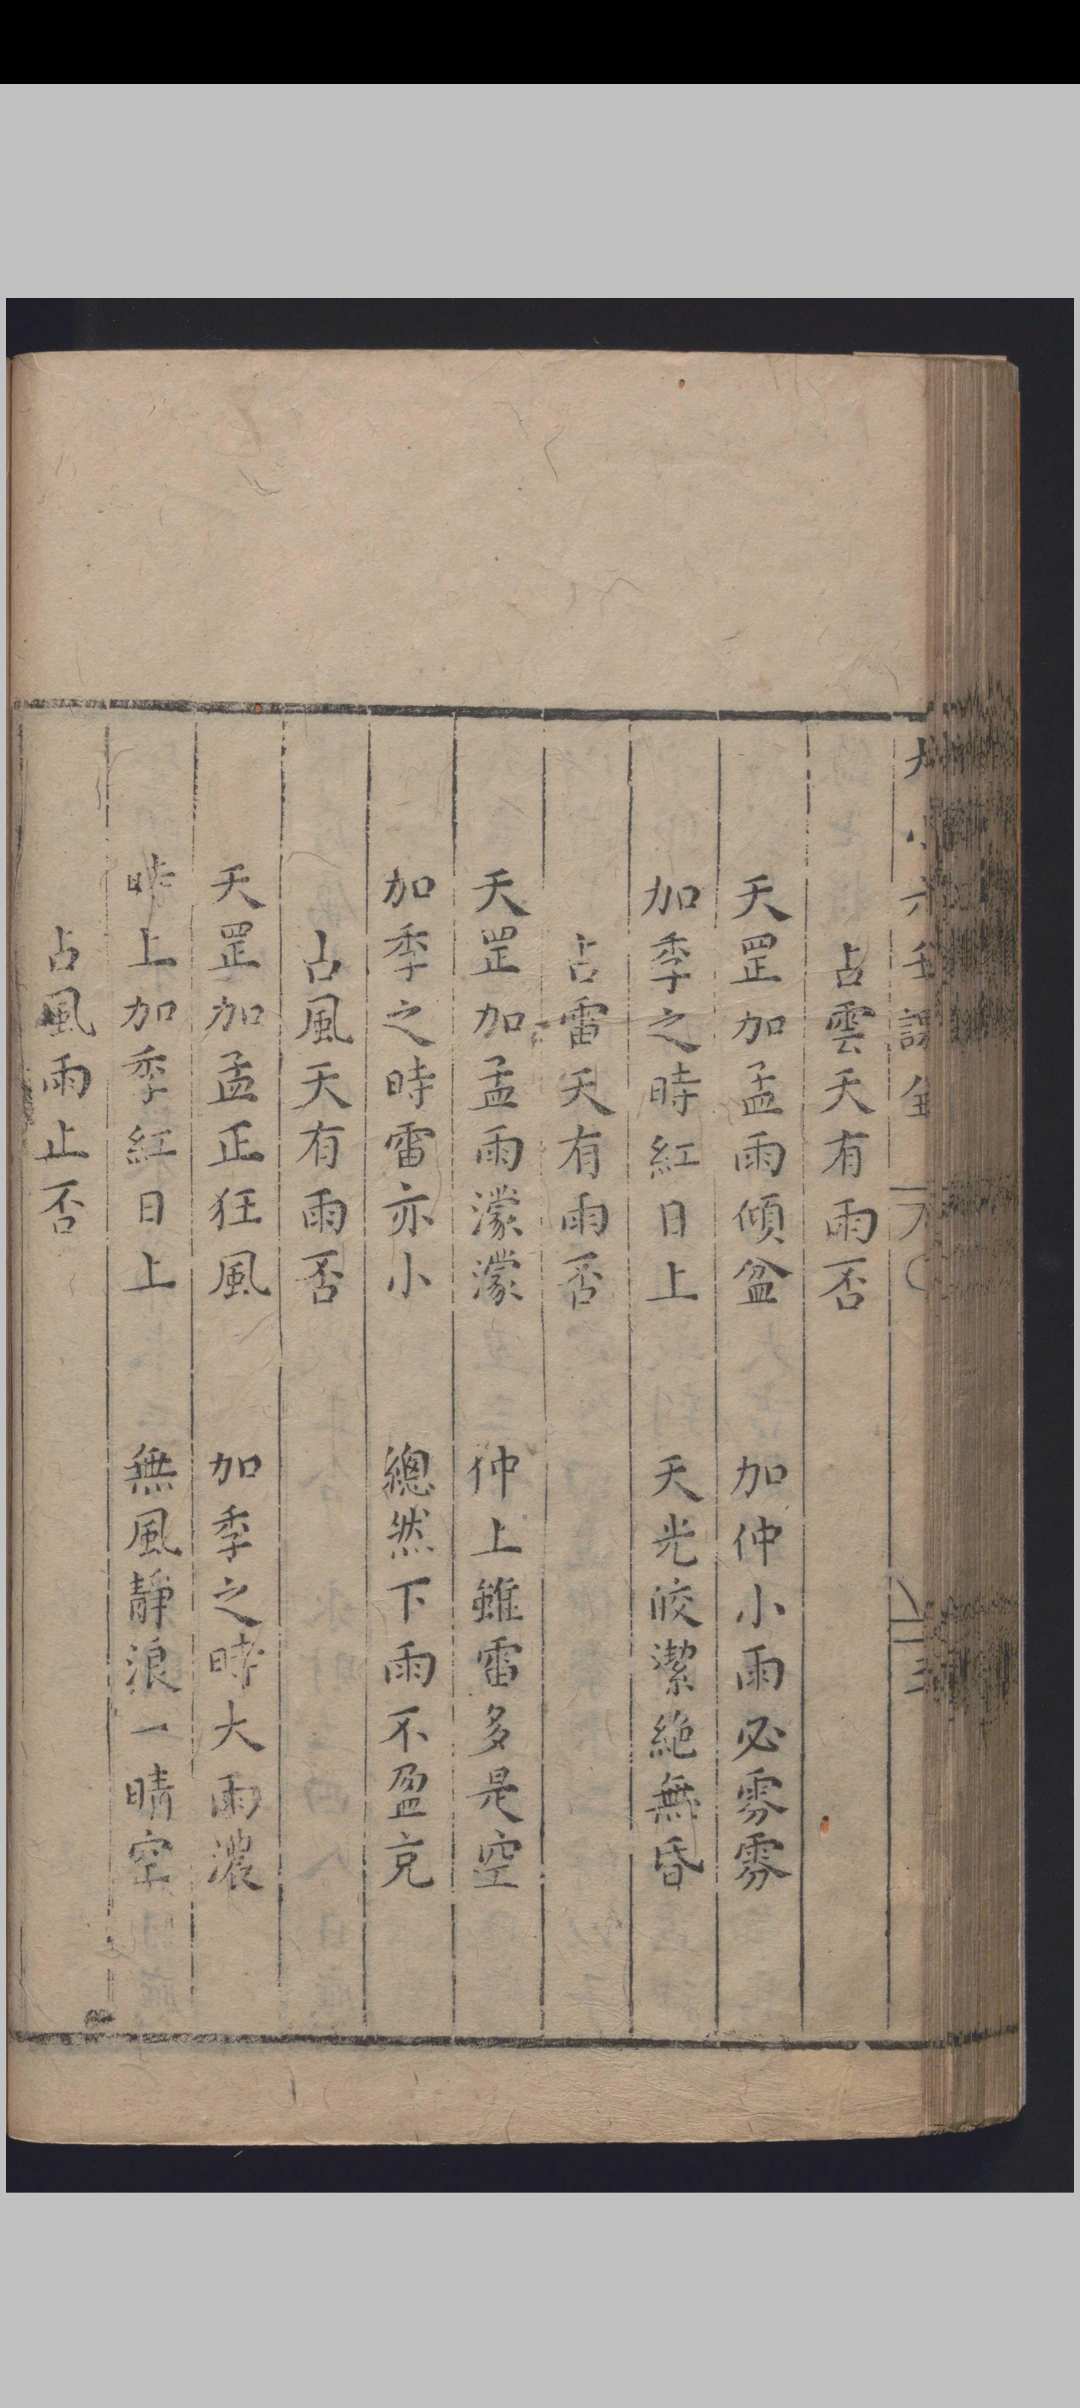 大小六壬課全
占雲天有雨否
天罡加孟雨傾盆　加仲小雨必雰雰
加季之時紅日上　天光皎潔絶無昏
占雷天有雨否
天罡加孟雨濛濛　仲上雖雷多是空
加季之時雷亦小　總然下雨不盈
占風天有雨否
天罡加孟正狂風　加季之時大雨濃
上加季紅日上　無風靜浪一晴空
占風雨止否